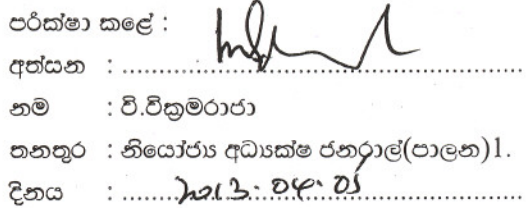 පරීක්ෂා කළේ :
අත්සන : ......................................................
නම : වි.වික්‍රමරාජා
තනතුර : නියෝජ්‍ය අධ්‍යක්ෂ ජනරාල්(පාලන)1.
දිනය : ........2013. 04. 05........................